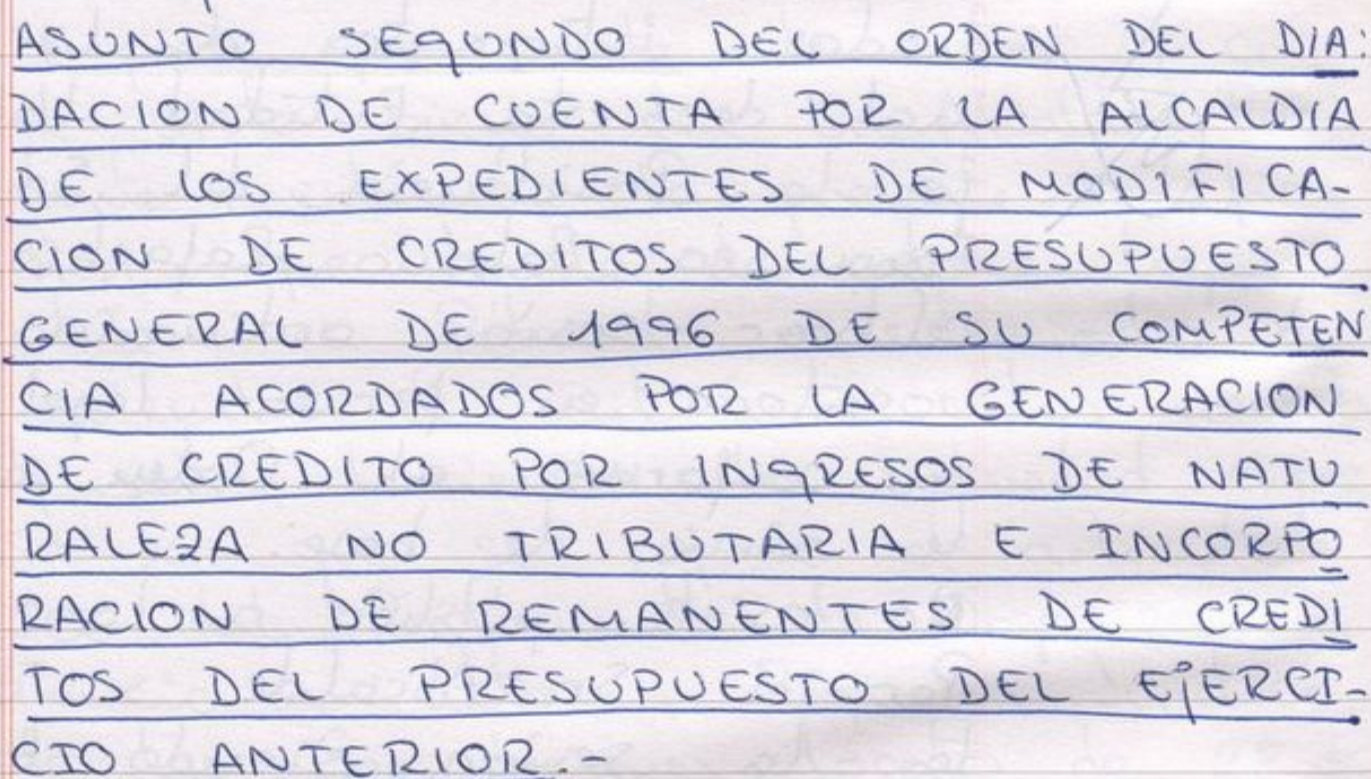 ASUNTO SEGUNDO DEL ORDEN DEL DIA:
DACION DE CUENTA POR LA ALCALDIA
DE LOS EXPEDIENTES DE MODIFICA-
CION DE CREDITOS DEL PRESUPUESTO
GENERAL DE 1996 DE SU COMPETEN
CIA ACORDADOS POR LA GENERACION
DE CREDITO POR INGRESOS DE NATU
RALEZA NO TRIBUTARIA E INCORPO
RACION DE REMANENTES DE CREDI
TOS DEL PRESUPUESTO DEL EJERCI-
CIO ANTERIOR.-